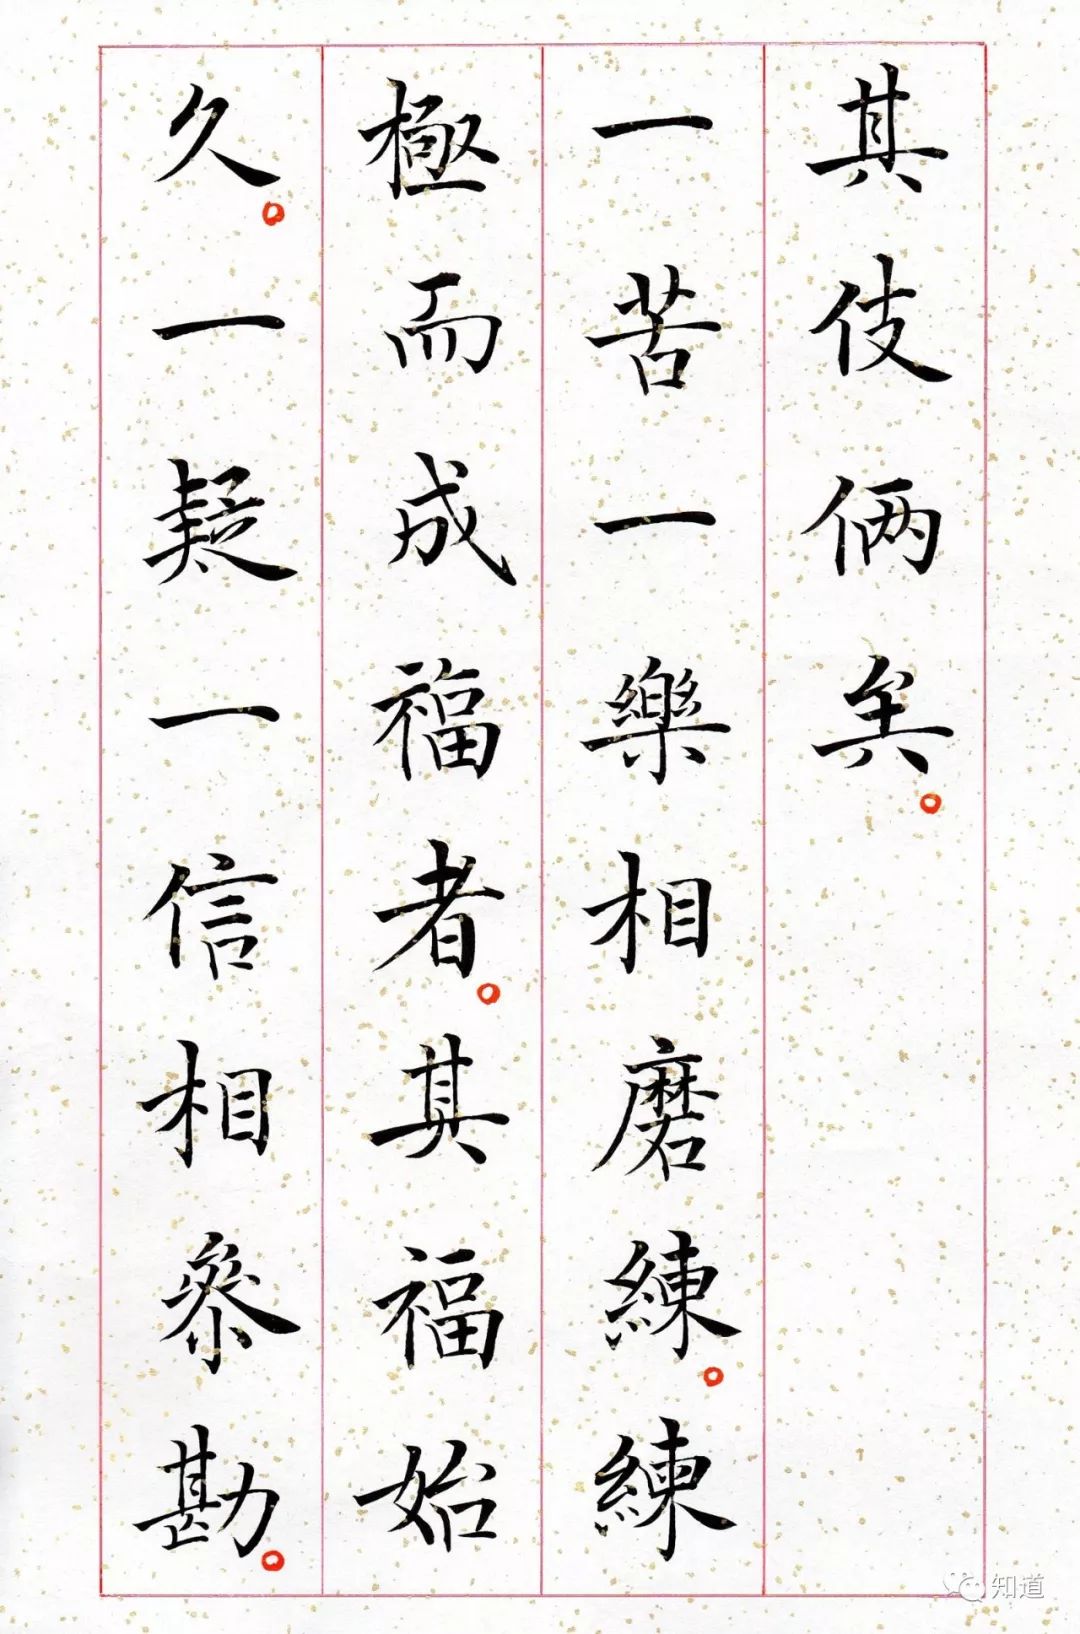 其伎倆矣。
一苦一樂相磨練。練
極而成福者。其福始
久。一疑一信相參勘。
知道